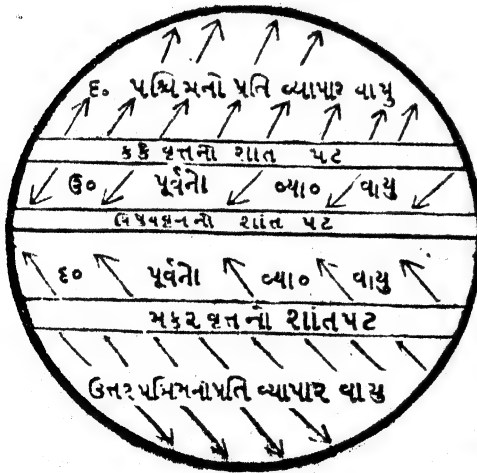 દ. પશ્ચિમનો પ્રતિ વ્યાપાર વાયુ
કર્કવૃત્તનો શાંત પટ
ઉ૦ પૂર્વનો વ્યા૦ વાયુ
વિષુવવૃત્તનો શાંત પટ
દ૦ પૂર્વનો વ્યા૦ વાયુ
મકરવૃત્તનો શાંતપટ
ઉત્તર પશ્ચિમનો પ્રતિ વ્યાપાર વાયુ